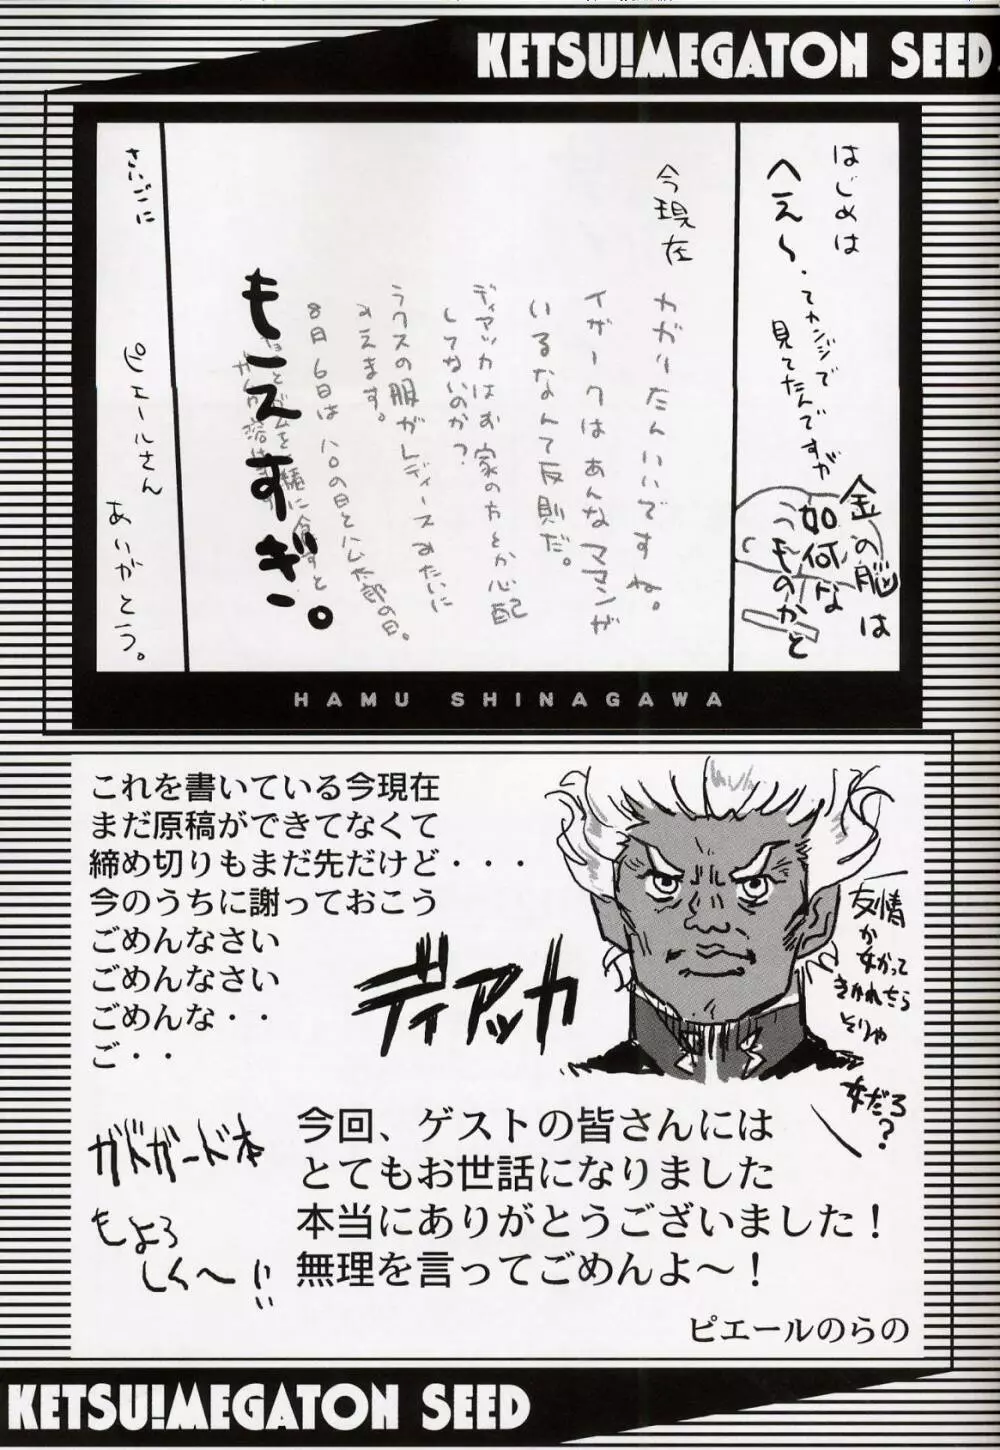 KETSU!MEGATON SEED
はじめは
へえ〜、てカンジで
見てたんですが
金の脳は
如何な
ものかと
今現在
カガリたんいいですね。
イザークはあんなママンが
いるなんて反則だ。
ディアッカはお家の方とか心配
してないのか?
ラクスの服がレディースみたいに
みえます。
8月6日はハムの日とハム太郎の日。
もえすぎ。
さいごに
ピエールさん
ありがとう。
HAMU SHINAGAWA
これを書いている今現在
まだ原稿ができてなくて
締め切りもまだ先だけど・・・
今のうちに謝っておこう
ごめんなさい
ごめんなさい
ごめんな・・
ご・・
ディアッカ
友情
か女かって
きかれたら
そりゃ
女だろ?
ガドガード本
もよろ
しく〜!!
今回、ゲストの皆さんには
とてもお世話になりました
本当にありがとうございました!
無理を言ってごめんよ〜!
ピエールのらの
KETSU!MEGATON SEED